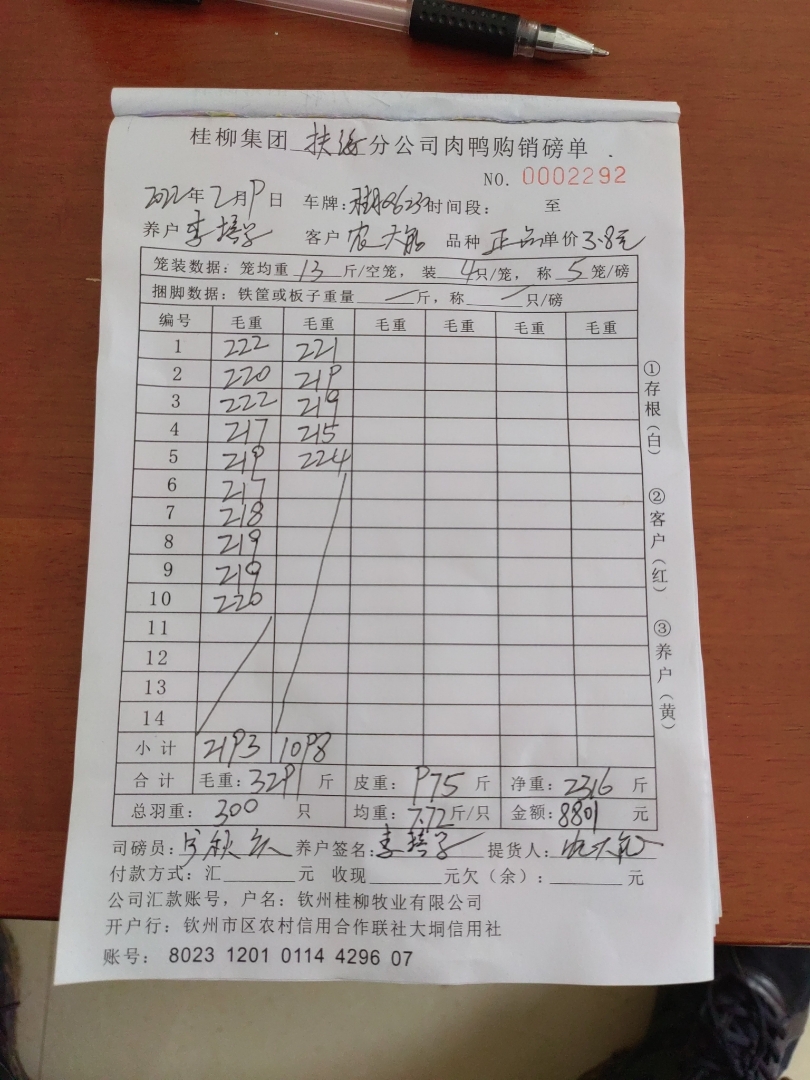 桂柳集团 扶海 分公司肉鸭购销磅单
NO. 0002292
2022年2月9日 车牌: 时间段: 至
养户 李培学 客户 农大 品种 正品 单价 3.8元
笼装数据:笼均重 13 斤/空笼,装 4只/笼,称 5 笼/磅
捆脚数据:铁筐或板子重量 — 斤,称 — 只/磅
编号 毛重 毛重 毛重 毛重 毛重 毛重
1 222 221
2 220 219
3 222 219
4 217 215
5 219 224
6 217
7 218
8 219
9 219
10 220
11
12
13
14
小计 2193 1098
合计 毛重:3291 斤 皮重:975 斤 净重:2316 斤
总羽重:300 只 均重:7.72斤/只 金额:8801 元
司磅员: 养户签名:李培学 提货人:农大
付款方式:汇 元 收现 元欠(余): 元
公司汇款账号,户名:钦州桂柳牧业有限公司
开户行:钦州市区农村信用合作联社大垌信用社
账号: 8023 1201 0114 4296 07
①存根(白)
②客户(红)
③养户(黄)